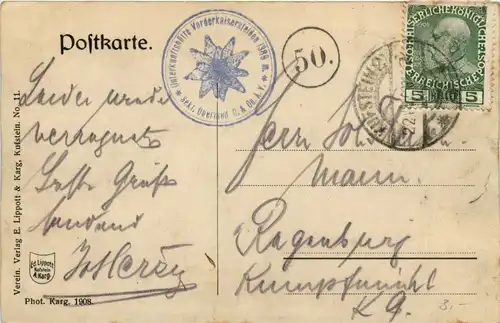 Postkarte.
Unterkunftshütte Vorderkaiserfelden 1384 m.
Sekt. Oberland D. & Oe. A. V.
50.
KAISERLICHE KÖNIGLICHE
ÖSTERREICHISCHE POST
5 5
KUFSTEIN
Leider
verregnet
Beste Grüße
sendend
Herrn
Mann
Regensburg
Kumpfmühl
3.-
Verein. Verlag E. Lippott & Karg, Kufstein. No. 11.
Ed. Lippott
Kufstein
A. Karg
Phot. Karg. 1908.